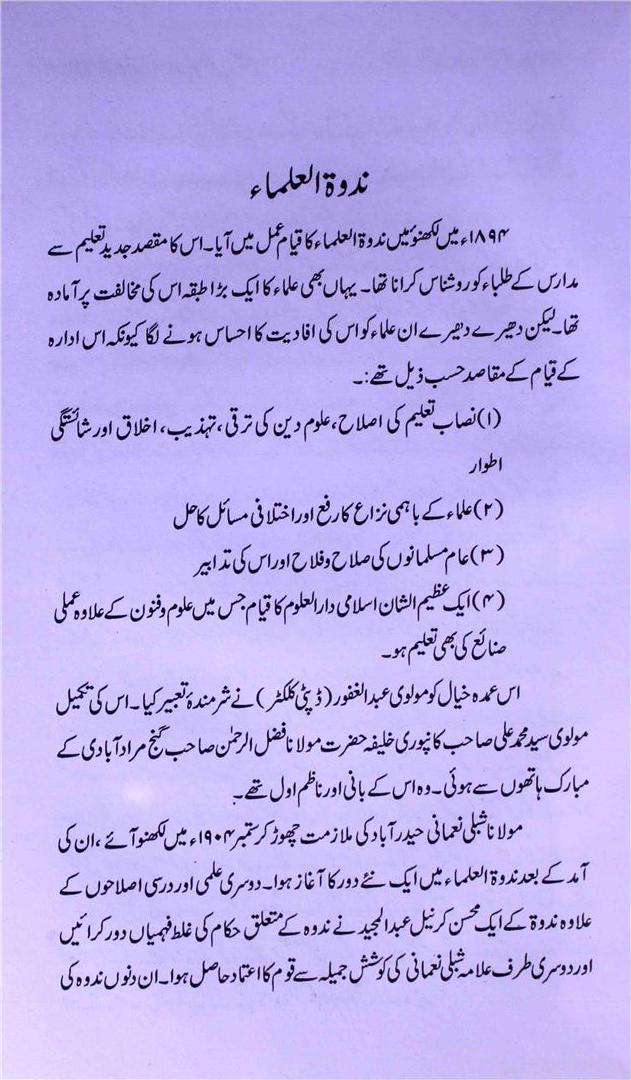 ندوۃ العلماء
۱۸۹۴ء میں لکھنؤ میں ندوۃ العلماء کا قیام عمل میں آیا۔ اس کا مقصد جدید تعلیم سے
مدارس کے طلباء کو روشناس کرانا تھا۔ یہاں بھی علماء کا ایک بڑا طبقہ اس کی مخالفت پر آمادہ
تھا۔ لیکن دھیرے دھیرے ان علماء کو اس کی افادیت کا احساس ہونے لگا کیونکہ اس ادارہ
کے قیام کے مقاصد حسب ذیل تھے:۔
(۱) نصاب تعلیم کی اصلاح، علوم دین کی ترقی، تہذیب، اخلاق اور شائستگی
اطوار
(۲) علماء کے باہمی نزاع کا رفع اور اختلافی مسائل کا حل
(۳) عام مسلمانوں کی صلاح و فلاح اور اس کی تدابیر
(۴) ایک عظیم الشان اسلامی دارالعلوم کا قیام جس میں علوم و فنون کے علاوہ عملی
صنائع کی بھی تعلیم ہو۔
اس عمدہ خیال کو مولوی عبدالغفور (ڈپٹی کلکٹر) نے شرمندۂ تعبیر کیا۔ اس کی تکمیل
مولوی سید محمد علی صاحب کانپوری خلیفہ حضرت مولانا فضل الرحمٰن صاحب گنج مرادآبادی کے
مبارک ہاتھوں سے ہوئی۔ وہ اس کے بانی اور ناظم اول تھے۔
مولانا شبلی نعمانی حیدرآباد کی ملازمت چھوڑ کر ستمبر ۱۹۰۴ء میں لکھنو آئے، ان کی
آمد کے بعد ندوۃ العلماء میں ایک نئے دور کا آغاز ہوا۔ دوسری علمی اور درسی اصلاحوں کے
علاوہ ندوۃ کے ایک محسن کرنیل عبدالمجید نے ندوہ کے متعلق حکام کی غلط فہمیاں دور کرائیں
اور دوسری طرف علامہ شبلی نعمانی کی کوشش جمیلہ سے قوم کا اعتماد حاصل ہوا۔ ان دنوں ندوہ کی